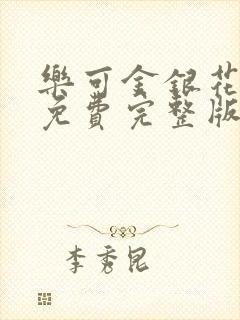 樂可金銀花
免費完整版
李秀昆